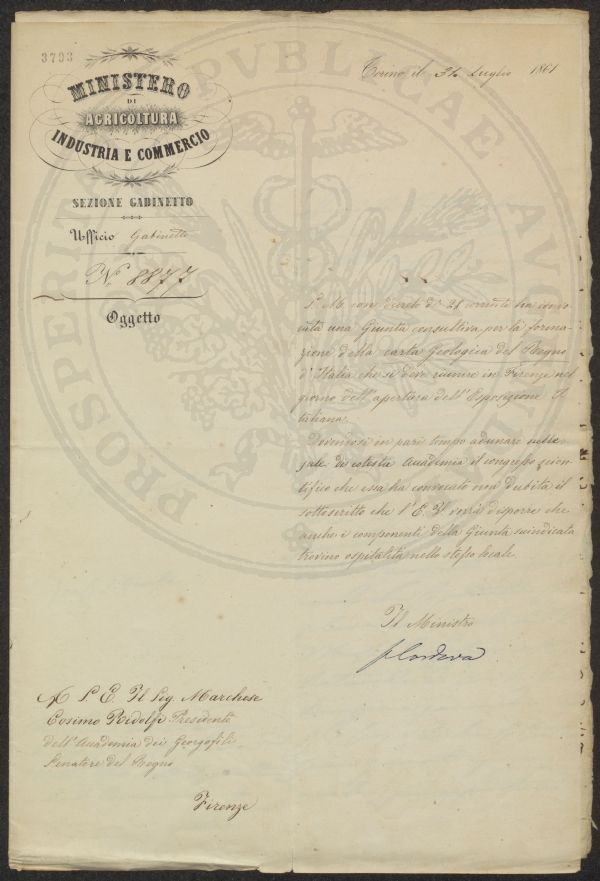 3793
MINISTERO
DI
AGRICOLTURA
INDUSTRIA E COMMERCIO
SEZIONE GABINETTO
Ufficio Gabinetto
N.º 8877
Oggetto
Torino il 31 Luglio 1861
S. M. con decreto di 21 corrente ha convo
cata una Giunta consultiva per la forma-
zione della carta Geologica del Regno
d'Italia che si deve riunire in Firenze nel
giorno dell'apertura dell'Esposizione I-
taliana.
Dovendosi in pari tempo adunare nelle
sale di cotesta Accademia il congresso scien-
tifico che essa ha convocato non dubita il
sottoscritto che l'E. V. vorrà disporre che
anche i componenti della Giunta suindicata
trovino ospitalità nello stesso locale.
Il Ministro
F Cordova
A S. E. Il Sig. Marchese
Cosimo Ridolfi Presidente
dell'Accademia dei Georgofili
Senatore del Regno
Firenze
PROSPERITATI PUBLICAE AUGENDAE